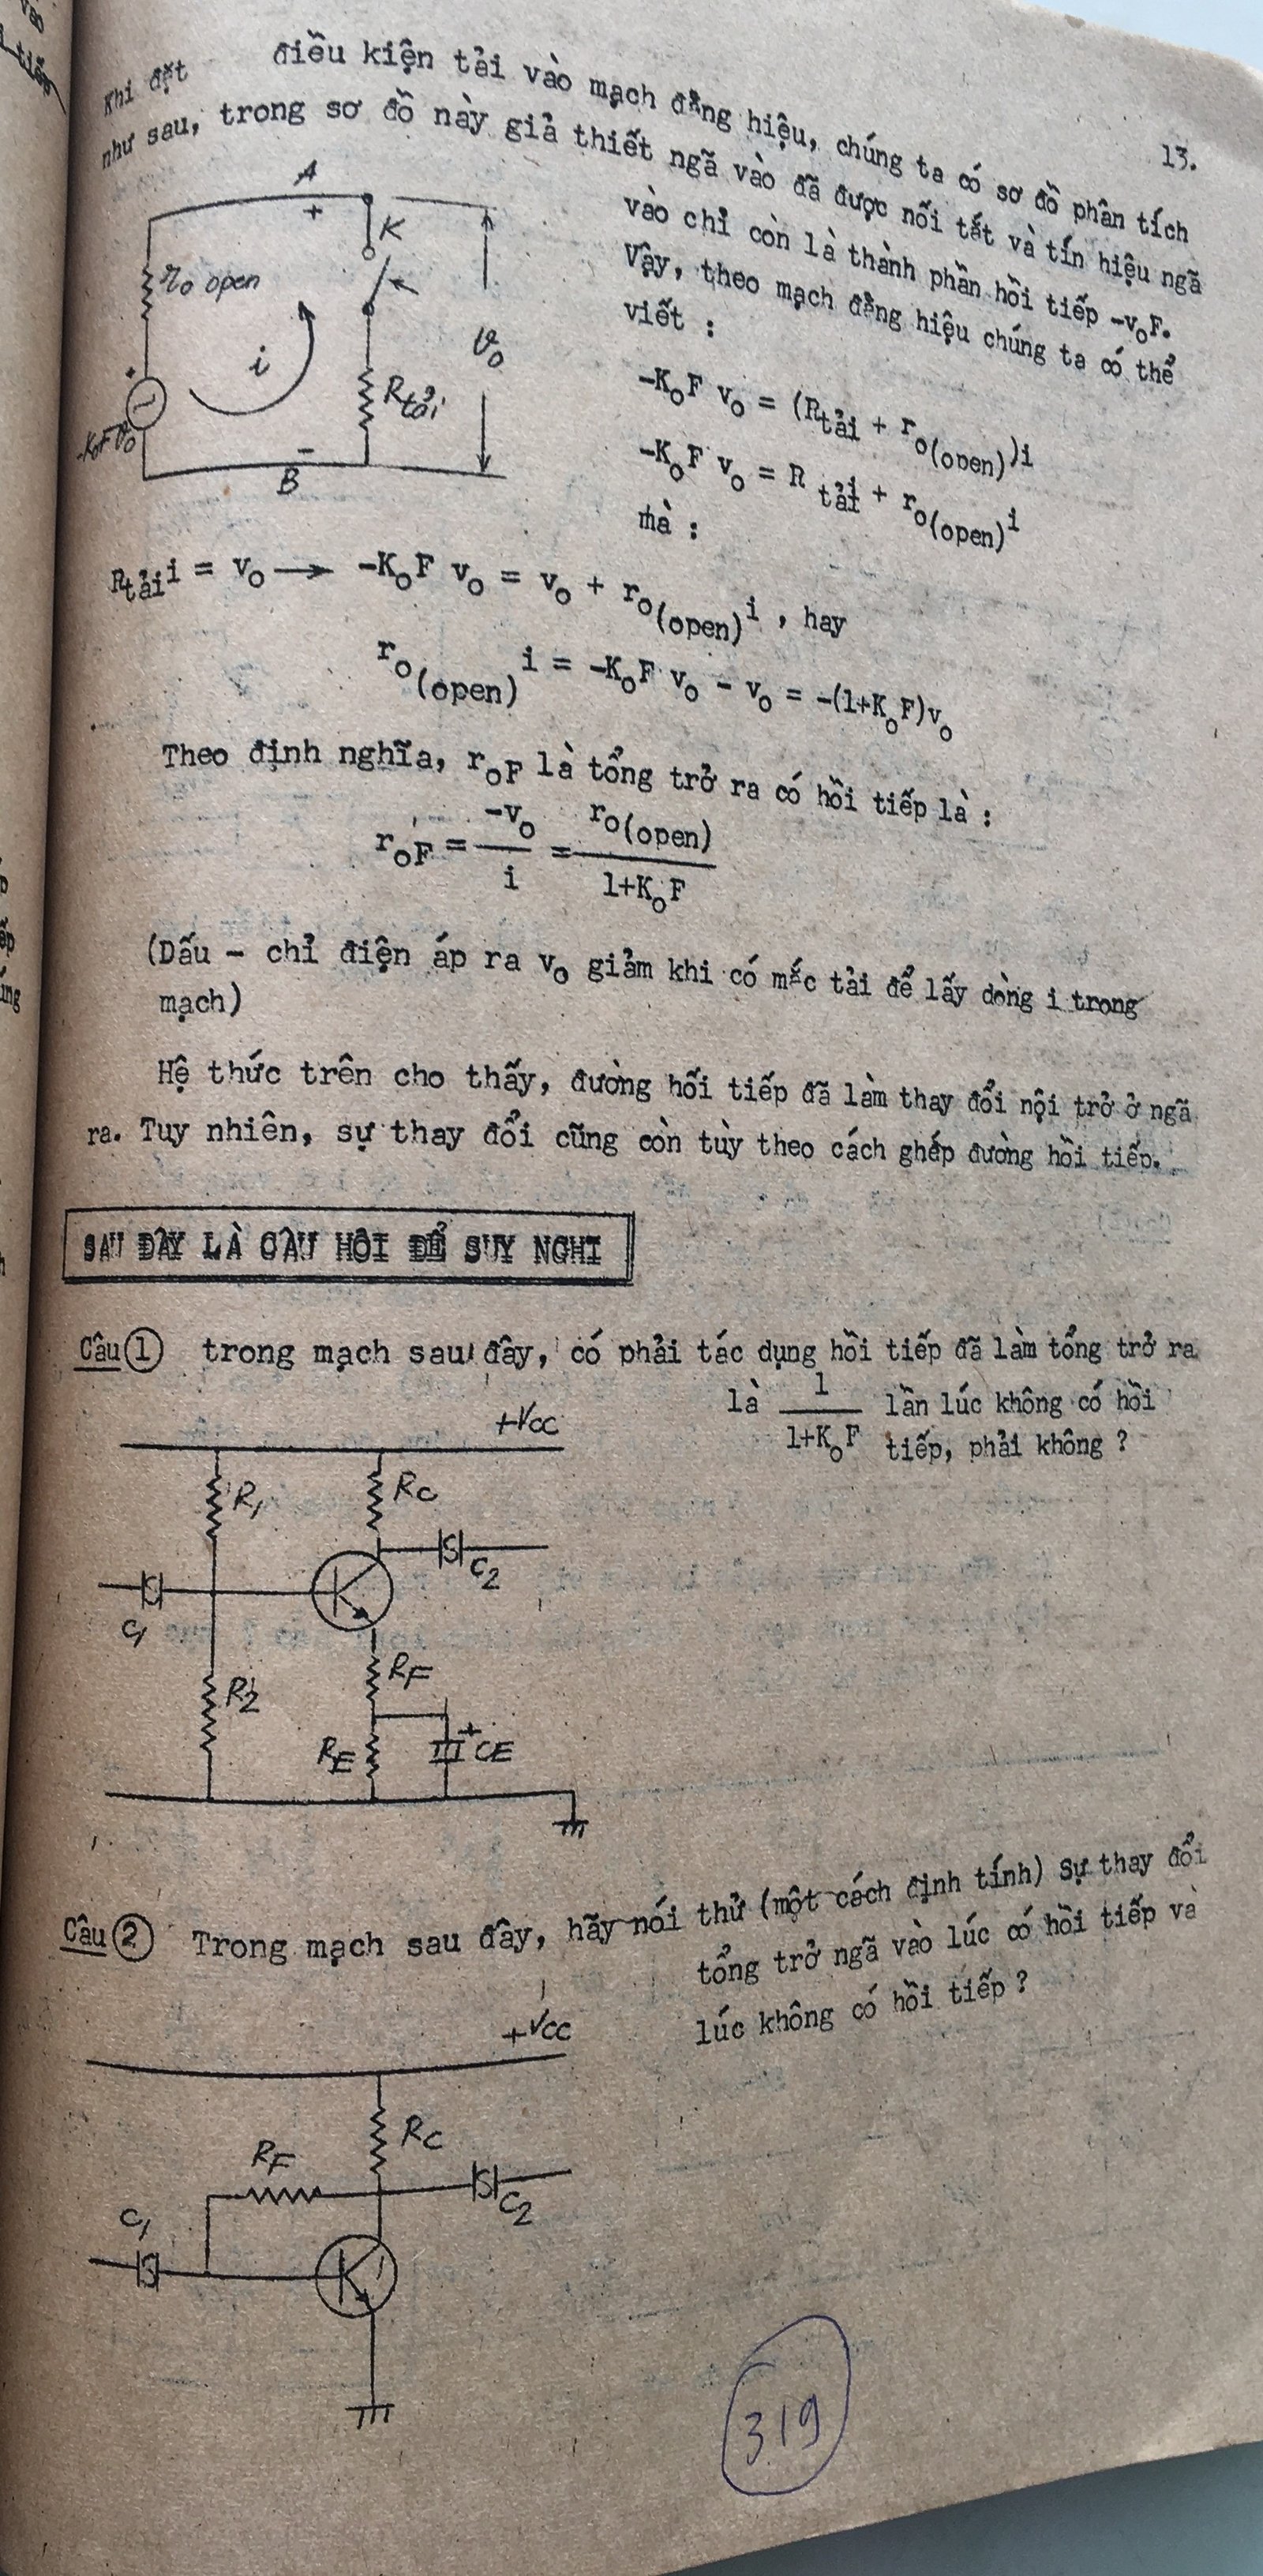 vào
tiếp
13.
Khi đặt điều kiện tải vào mạch đẳng hiệu, chúng ta có sơ đồ phân tích
như sau, trong sơ đồ này giả thiết ngã vào đã được nối tắt và tín hiệu ngã
vào chỉ còn là thành phần hồi tiếp -v₀F.
Vậy, theo mạch đẳng hiệu chúng ta có thể
viết :
A
+
K
r₀ open
i
v₀
Rtải
-K₀Fv₀
-
B
-K₀F v₀ = (Rtải + r₀(open))i
-K₀F v₀ = R tảii + r₀(open)i
mà :
Rtảii = v₀ → -K₀F v₀ = v₀ + r₀(open)i , hay
r₀(open)i = -K₀F v₀ - v₀ = -(1+K₀F)v₀
Theo định nghĩa, r₀F là tổng trở ra có hồi tiếp là :
r₀F = -v₀/i = r₀(open)/1+K₀F
(Dấu - chỉ điện áp ra v₀ giảm khi có mắc tải để lấy dòng i trong
mạch)
Hệ thức trên cho thấy, đường hối tiếp đã làm thay đổi nội trở ở ngã
ra. Tuy nhiên, sự thay đổi cũng còn tùy theo cách ghép đường hồi tiếp.
SAU ĐÂY LÀ CÂU HỎI ĐỂ SUY NGHI
Câu 1 trong mạch sau đây, có phải tác dụng hồi tiếp đã làm tổng trở ra
là 1/1+K₀F lần lúc không có hồi
tiếp, phải không ?
+VCC
R₁
RC
C₂
C₁
RF
R2
RE
+
CE
Câu 2 Trong mạch sau đây, hãy nói thử (một cách định tính) Sự thay đổi
tổng trở ngã vào lúc có hồi tiếp và
lúc không có hồi tiếp ?
+VCC
RC
RF
C₂
C₁
319